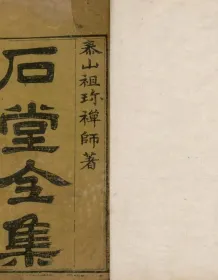 泰山祖珍禪師著
石堂全集